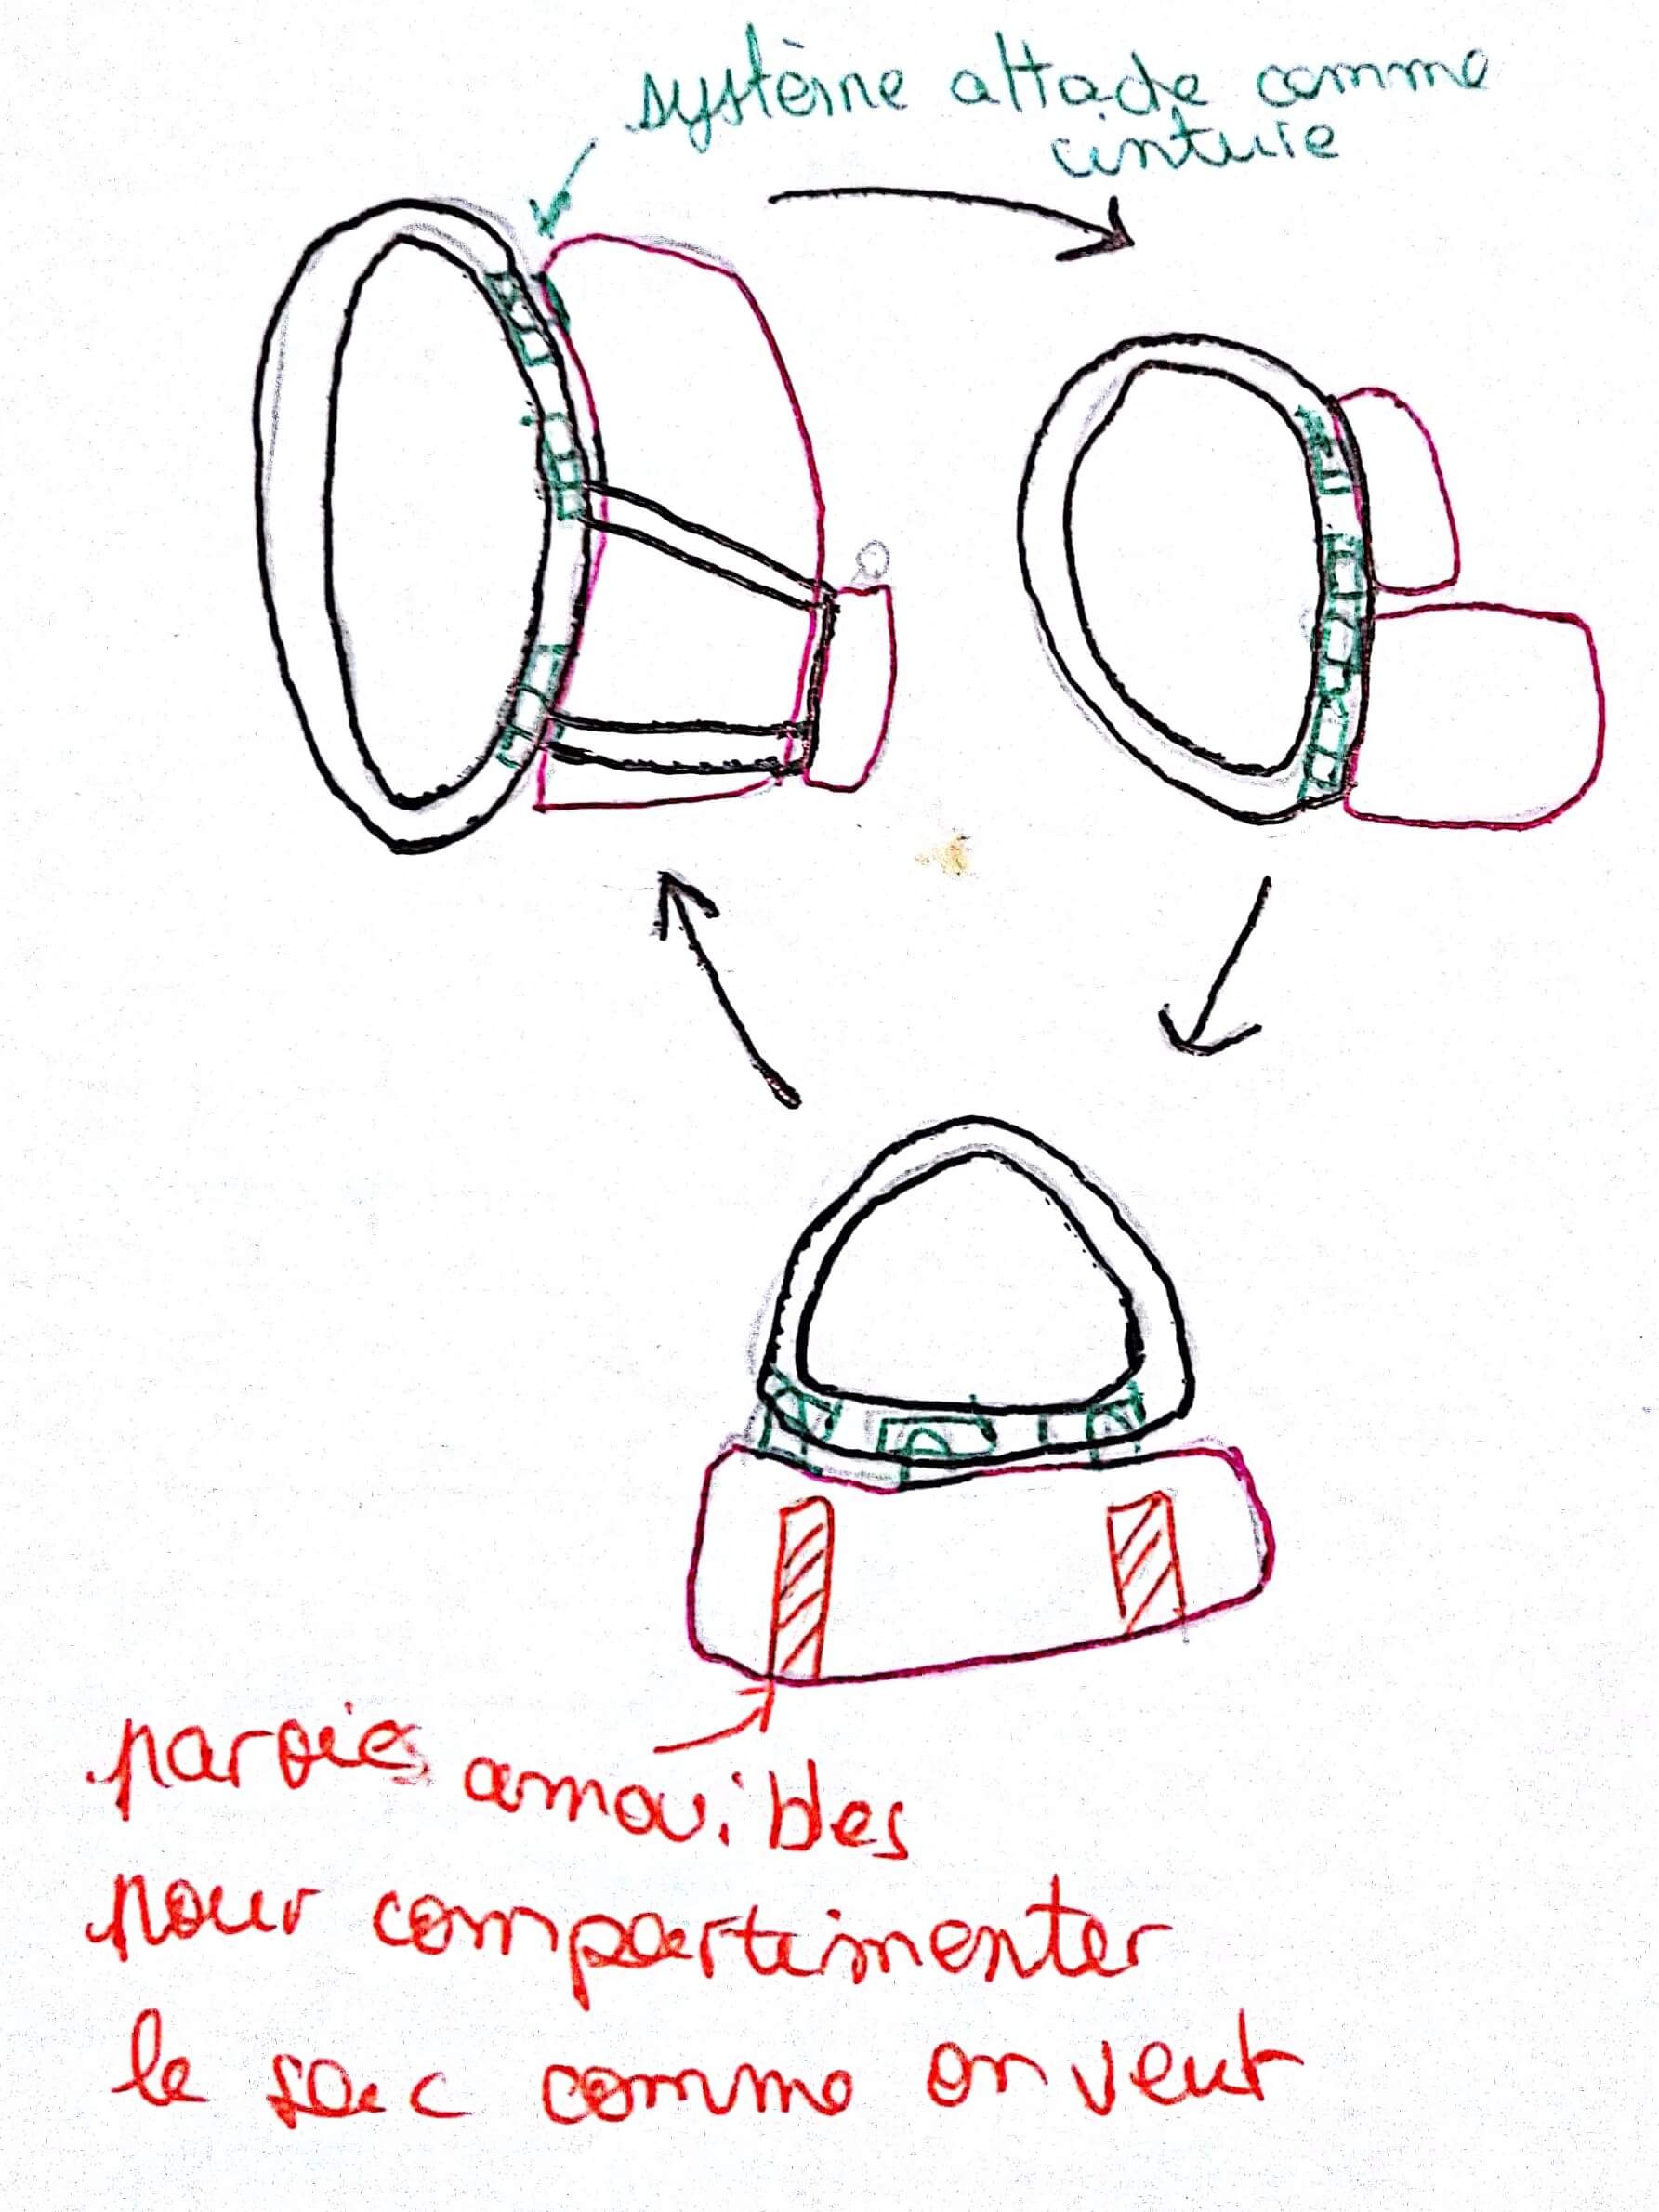 système attache comme
cinture
paroies amovibles
pour compartimenter
le sac comme on veut